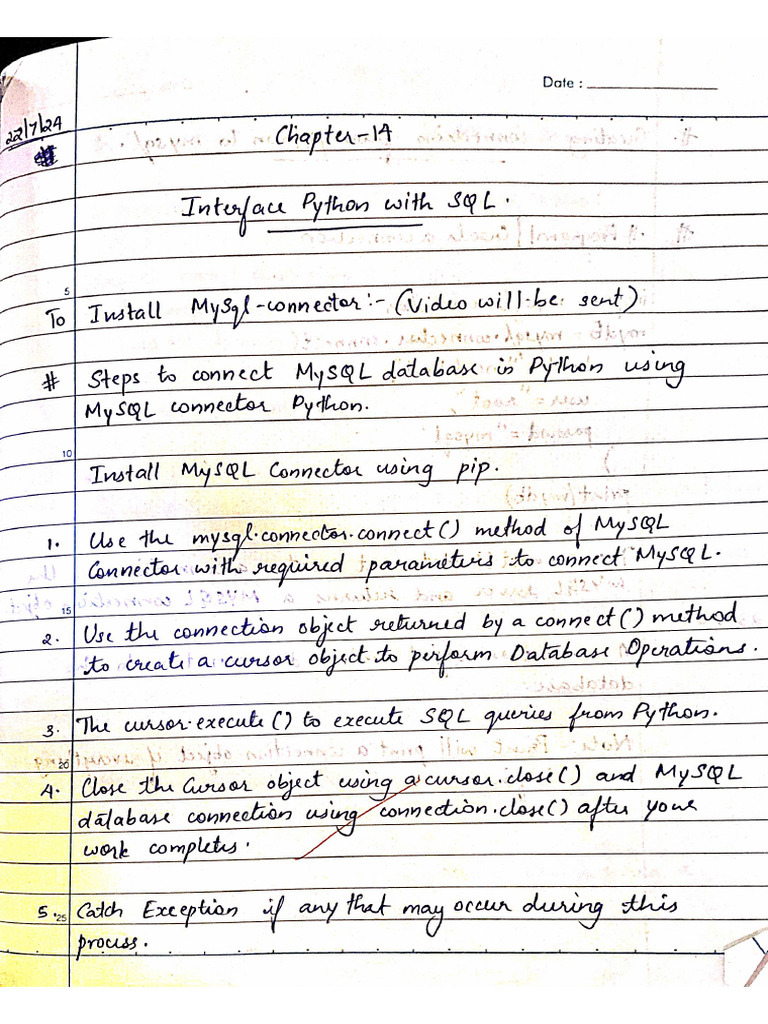 Date :
22/7/24
Chapter-14
Interface Python with SQL.
5
To Install MySql-connector:- (Video will be sent)
# Steps to connect MySQL database in Python using
MySQL connector Python.
10
Install MySQL Connector using pip.
1. Use the mysql.connector.connect() method of MySQL
Connector with required parameters to connect MySQL.
15
2. Use the connection object returned by a connect() method
to create a cursor object to perform Database Operations.
3. The cursor.execute() to execute SQL queries from Python.
20
4. Close the Cursor object using a cursor.close() and MySQL
database connection using connection.close() after your
work completes.
5. 25 Catch Exception if any that may occur during this
process.